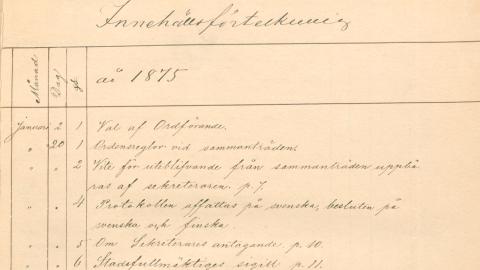 Innehållsförteckning
Månad Dag § år 1875
Januari 2 1 Val af Ordförande.
" 20 1 Ordensreglor vid sammanträden.
" " 2 Vite för uteblifvande från sammanträden uppbä-
ras af sekreteraren. p. 7.
" " 4 Protokollen affattas på svenska, besluten på
svenska och finska.
" " 5 Om Sekreterares antagande. p. 10.
" " 6 Stadsfullmäktiges sigill p. 11.